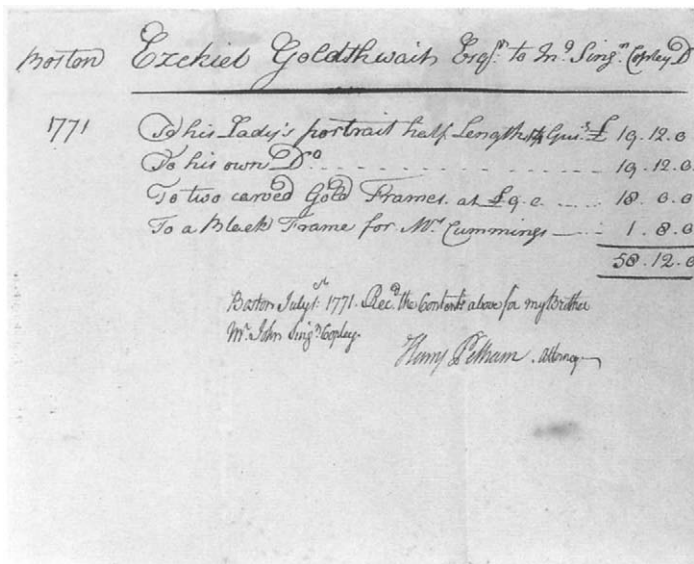 Boston Ezekiel Goldthwait Esqr. to Jno. Singn. Copley Dr
1771 To his Lady's portrait half Length 14 Guis. £ 19.12.0
To his own Do. 19.12.0
To two carved Gold Frames. at £9.0 18.0.0
To a Black Frame for Mrs Cummings 1.8.0
58.12.0
Boston July 1st. 1771. Recd. the Contents above for my Brother
Mr. John Singn. Copley.
Henry Pelham. attorney